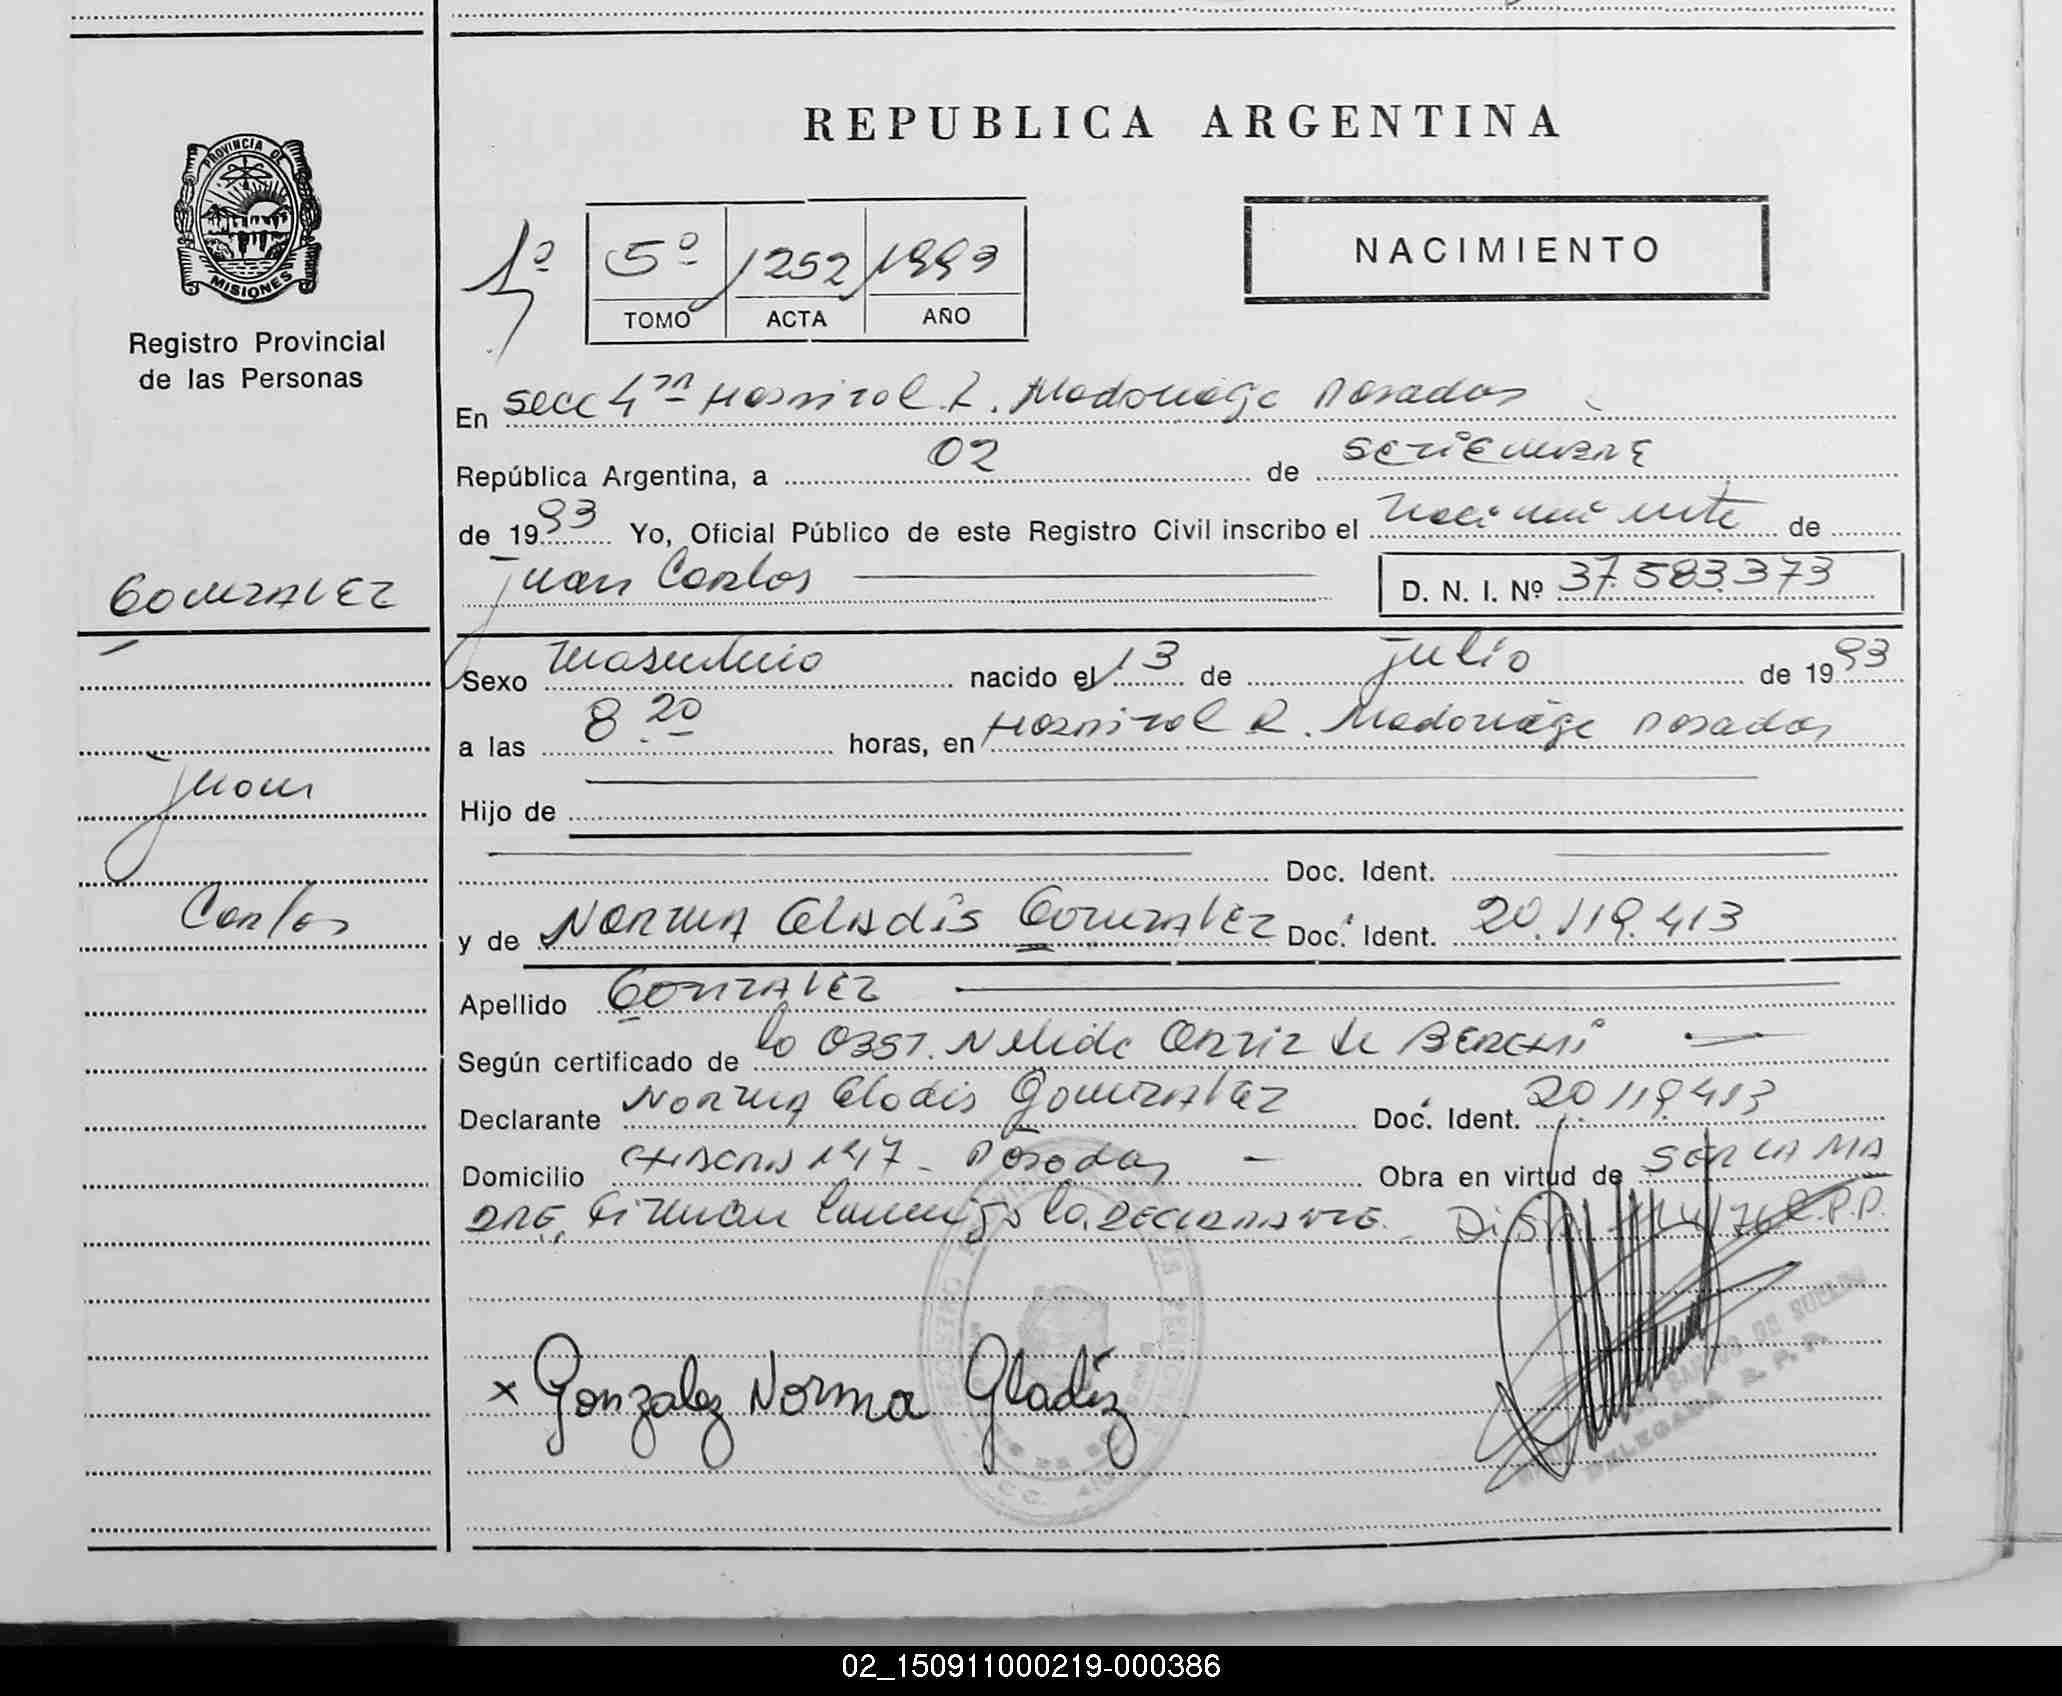 REPUBLICA ARGENTINA
PROVINCIA DE
MISIONES
Registro Provincial
de las Personas
1º
5º 1252 1993
TOMO ACTA AÑO
NACIMIENTO
En Secc 4ª Hospital R. Madariaga Posadas
República Argentina, a 02 de SETIEMBRE
de 1993 Yo, Oficial Público de este Registro Civil inscribo el Nacimiento de
Juan Carlos
D. N. I. Nº 37.583.373
GONZALEZ
Juan
Carlos
Sexo Masculino nacido el 13 de Julio de 1993
a las 8.20 horas, en Hospital R. Madariaga Posadas
Hijo de
Doc. Ident.
y de NORMA Gladis GONZALEZ Doc. Ident. 20.119.413
Apellido GONZALEZ
Según certificado de la OBST. Nelida Ortiz de
Declarante NORMA Gladis GONZALEZ Doc. Ident. 20.119.413
Domicilio 147 - Posadas - Obra en virtud de SER LA MA
DRE, Firman conmigo la DECLARANTE. Disp. 114/76 R.P.P.
x Gonzalez Norma Gladiz
DE
DELEGADA R. P. P.
02_150911000219-000386